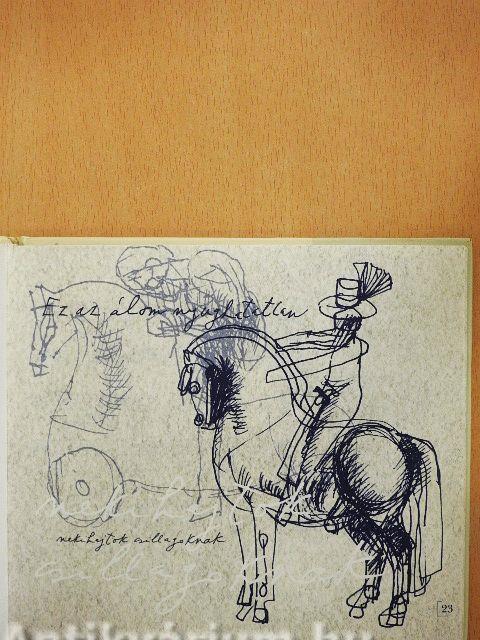 Ez az álom nyughatatlan
nekihajtok
nekihajtok csillagoknak
csillagoknak
23
Antikvárium.hu